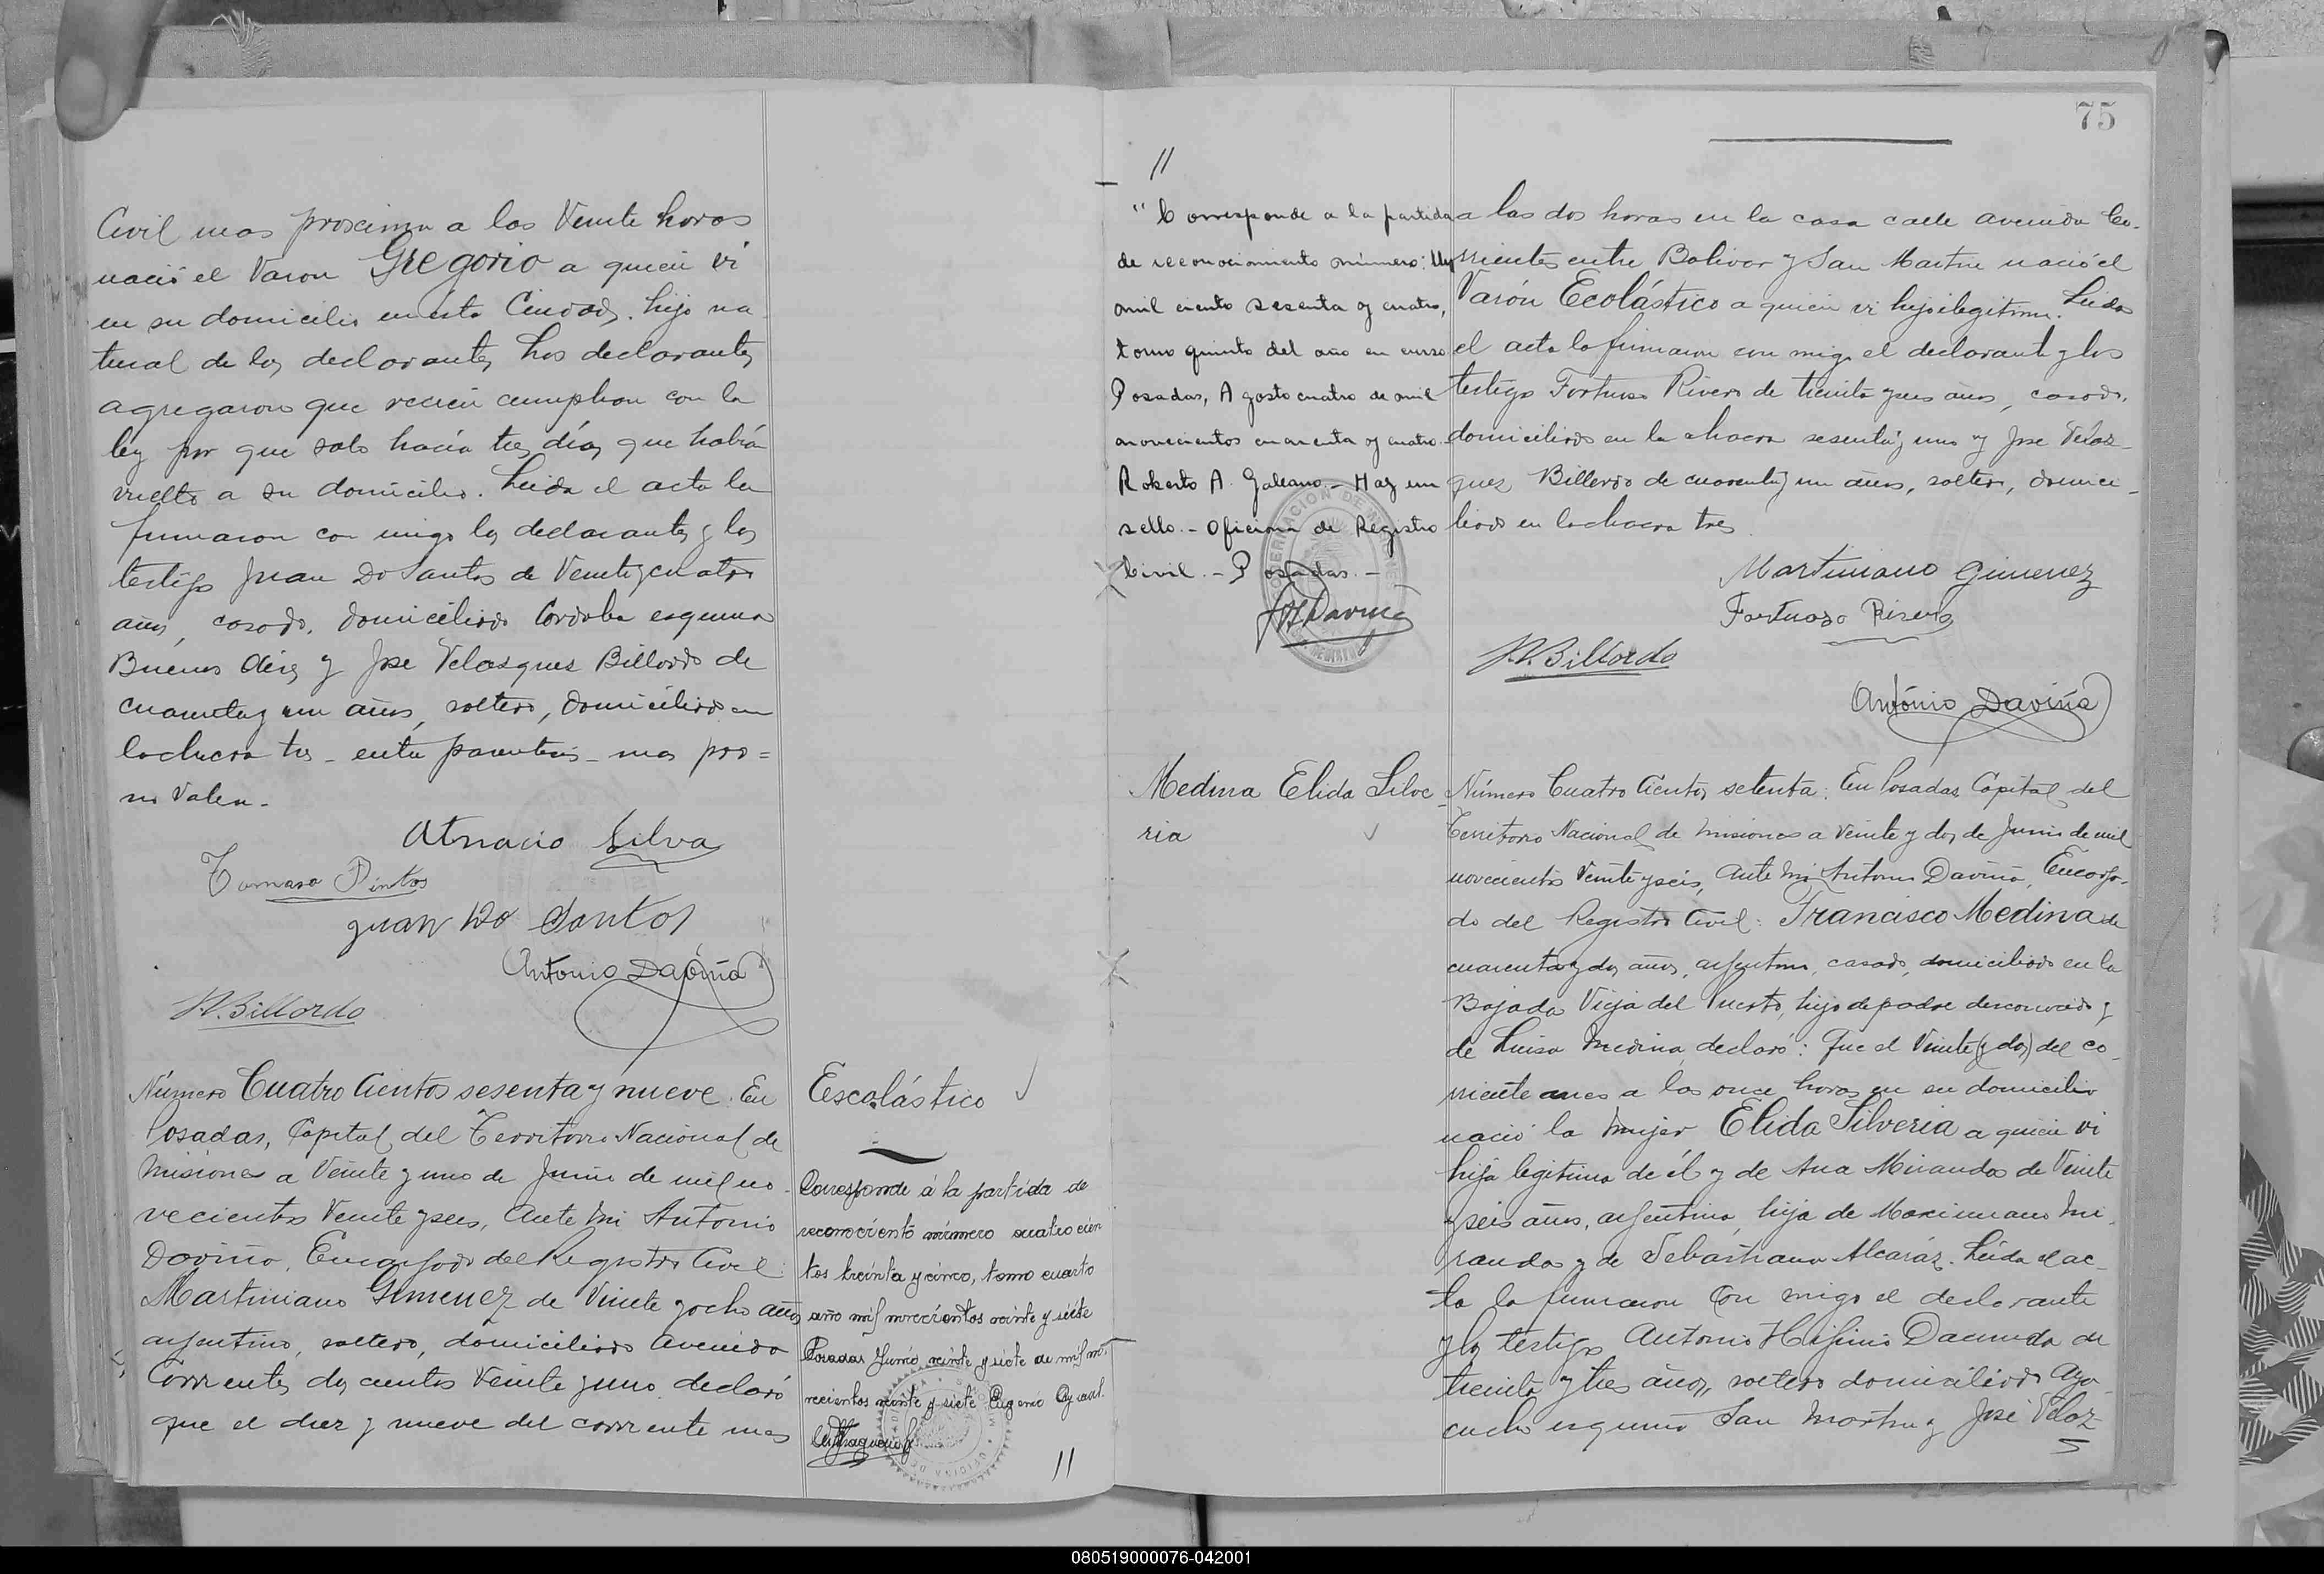 Civil mas proxima a las Veinte horas
nació el Varon Gregorio a quien vi
en su domicilio en esta Ciudad, hijo na
tural de los declarantes Los declarantes
agregaron que recien cumplian con la
ley por que solo hacía tres días que habian
vuelto a su domicilio. Leida el acta la
firmaron con migo los declarantes y los
testigos Juan Do Santos de Veinte y cuatro
años, casado, domiciliado Cordoba esquina
Buenos Aires y Jose Velasques Billordo de
cuarenta y un años, soltero, domiciliado en
la chacra tres - entre parentesis - mas pro=
no Valen-
Atnacio Silva
Tomasa Pintos
Juan Do Santos
Antonio Daviña
J.V. Billordo
Número Cuatro Cientos sesenta y nueve. En
Posadas, Capital del Territorio Nacional de
Misiones a Veinte y uno de Junio de mil no-
vecientos Veinte y seis, Ante mi Antonio
Daviña, Encargado del Registro Civil:
Martiniano Gimenez de Veinte y ocho años
argentino, soltero, domiciliado Avenida
Corrientes dos cientos Veinte y uno declaró
que el diez y nueve del corriente mes
Escolástico
Corresponde á la partida de
reconociento número cuatro cien
tos treinta y cinco, tomo cuarto
año mil novecientos veinte y siete
Posadas Junio veinte y siete de mil no-
vecientos veinte y siete Eugenio
11
75
11
"Corresponde a la partida
de reconocimiento número: Un
mil ciento sesenta y cuatro,
tomo quinto del año en curso
Posadas, Agosto cuatro de mil
novecientos cuarenta y cuatro.-
Roberto A. Galeano.- Hay un
sello.- Oficina de Registro
Civil.- Posadas.-
a las dos horas en la casa calle avenida Co-
rrientes entre Bolivar y San Martin nació el
Varón Ecolástico a quien vi hijo ilegitimo. Leida
el acta la firmaron con migo el declarante y los
testigos Fortuoso Rivero de treinta y seis años, casado,
domiciliado en la chacra sesenta y uno y Jose Velaz-
quez Billordo de cuarenta y un años, soltero, domici-
liado en la chacra tres
Martiniano Gimenez
Fortuoso Rivero
J.V. Billordo
Antonio Daviña
Medina Elida Silve-
ria
Número Cuatro Cientos setenta: En Posadas Capital del
Territorio Nacional de Misiones a Veinte y dos de Junio de mil
novecientos Veinte y seis, Ante mi Antonio Daviña, Encarga-
do del Registro Civil: Francisco Medina de
cuarenta y dos años, argentino, casado, domiciliado en la
Bajada Vieja del Puerto, hijo de padre desconocido y
de Luisa Medina declaró: Que el Veinte (y dos) del co-
rriente mes a las once horas en su domicilio
nació la mujer Elida Silveria a quien vi
hija legitima de él y de Ana Miranda de Veinte
y seis años, argentina, hija de Maximiano Mi-
randa y de Sebastiana Alcaráz. Leida el ac-
ta la firmaron Con migo el declarante
y los testigos Antonio Higinio Dacunda de
treinta y tres años, soltero domiciliado Aya-
cucho esquina San Martin y José Velaz-
080519000076-042001